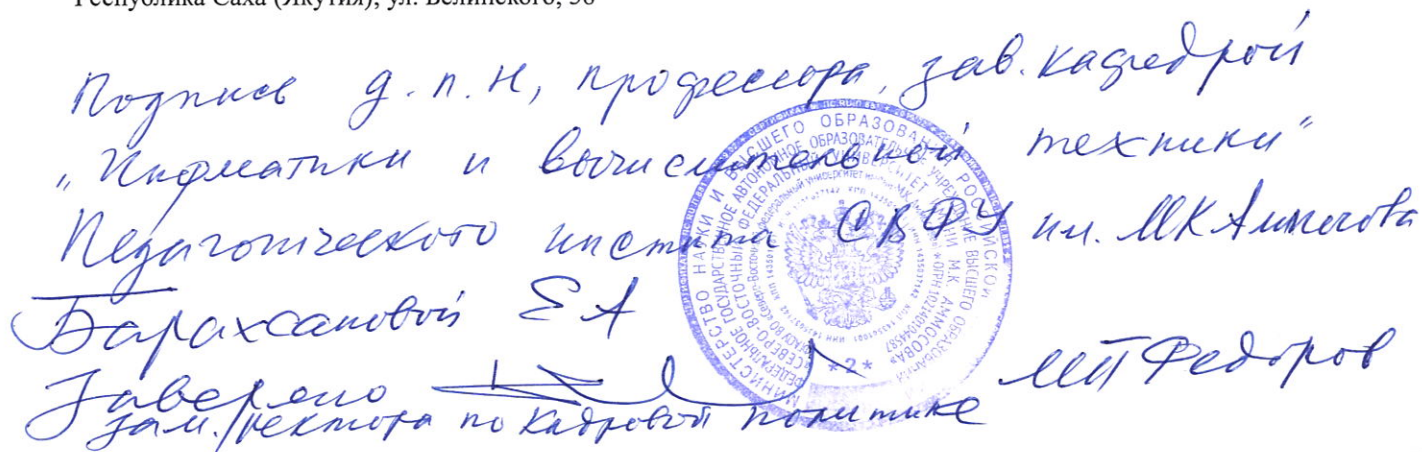 Республика Саха (Якутия), ул. Белинского, 58
Подпись д.п.н, профессора, зав. кафедрой
„Информатики и вычислительной техники"
Педагогического института СВФУ им. МК Аммосова
Барахсановой ЕА
Заверено МП Федоров
Зам. ректора по кадровой политике
МИНИСТЕРСТВО НАУКИ И ВЫСШЕГО ОБРАЗОВАНИЯ РОССИЙСКОЙ
ФЕДЕРАЛЬНОЕ ГОСУДАРСТВЕННОЕ АВТОНОМНОЕ ОБРАЗОВАТЕЛЬНОЕ УЧРЕЖДЕНИЕ ВЫСШЕГО ОБРАЗОВАНИЯ
«СЕВЕРО-ВОСТОЧНЫЙ ФЕДЕРАЛЬНЫЙ УНИВЕРСИТЕТ ИМЕНИ М.К. АММОСОВА»
* ОГРН 1021401044587
*2*